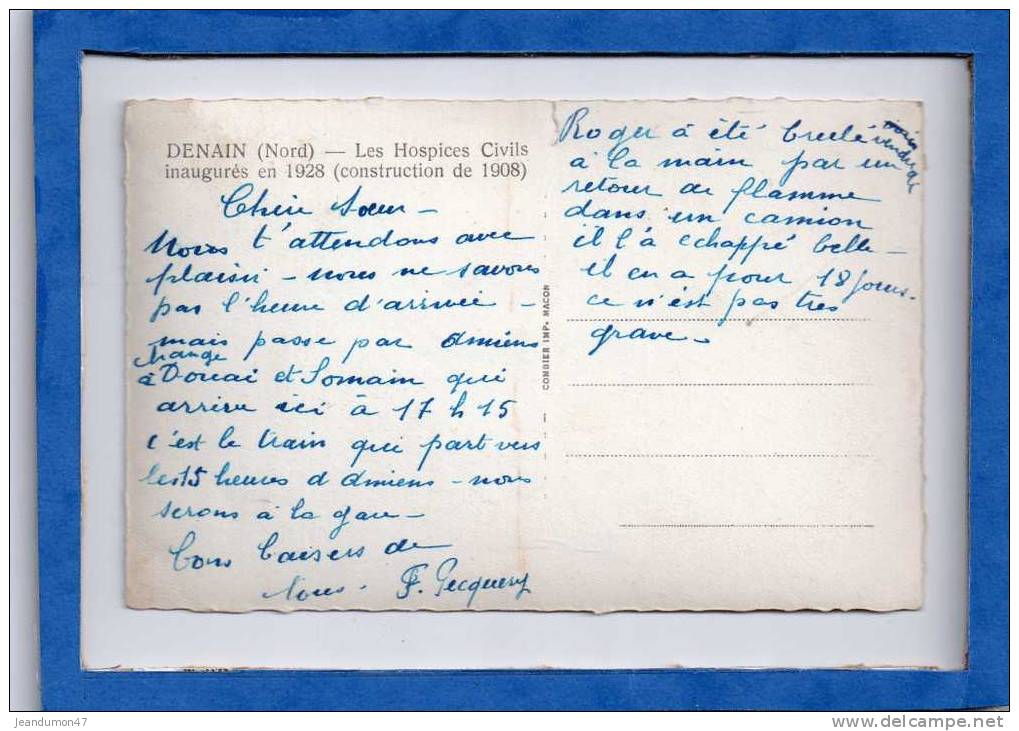 DENAIN (Nord) — Les Hospices Civils
inaugurés en 1928 (construction de 1908)
Chère Sœur -
Nous t'attendons avec
plaisir - nous ne savons
pas l'heure d'arrivée -
mais passe par Amiens
change
à Douai et Somain qui
arrive ici à 17 h 15
c'est le train qui part vers
les 15 heures d Amiens - nous
serons à la gare -
bons baisers de
tous. F. Pecquery
COMBIER IMP. MACON
Roger à été brulé
à la main par un
retour de flamme
dans un camion
il l'à echappé belle -
il en a pour 18 jours.
ce n'est pas tres
grave -
jeandumon47
www.delcampe.net